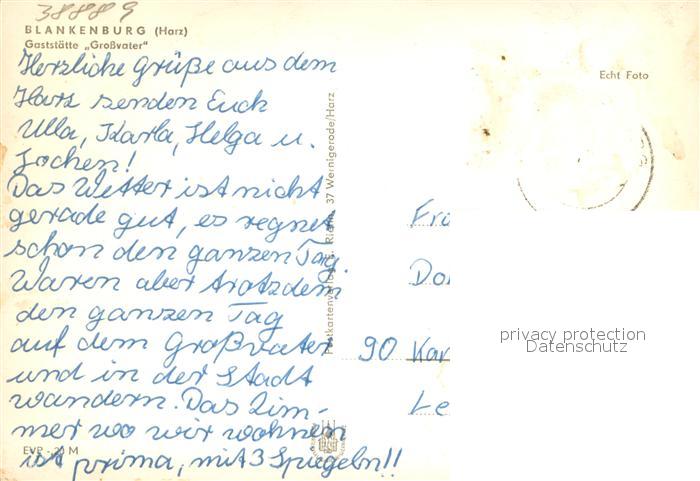 38889
BLANKENBURG (Harz)
Gaststätte „Großvater"
Echt Foto
Herzliche Grüße aus dem
Harz senden Euch
Ulla, Karla, Helga u.
Jochen!
Das Wetter ist nicht
gerade gut, es regnet
schon den ganzen Tag.
Waren aber trotzdem
den ganzen Tag
auf dem Großvater
und in der Stadt
wandern. Das Zim-
mer wo wir wohnen
ist prima, mit 3 Spiegeln!!
EVP -,20 M
37 Wernigerode/Harz
Fra
Do
90 Kar
Le
privacy protection
Datenschutz